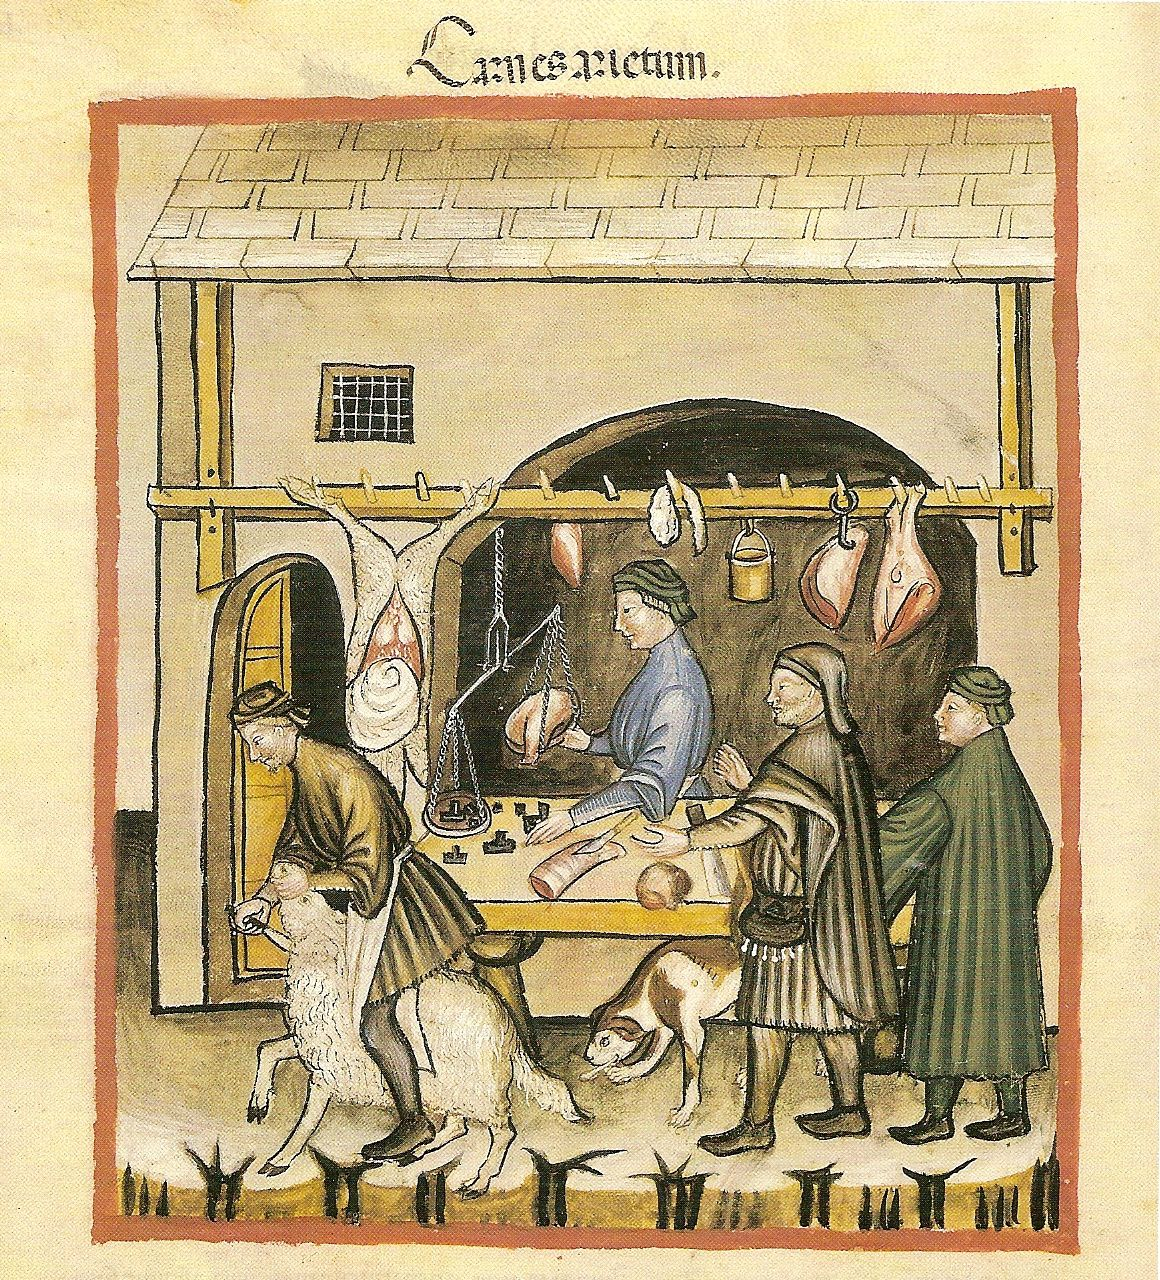 Carnes arietum.